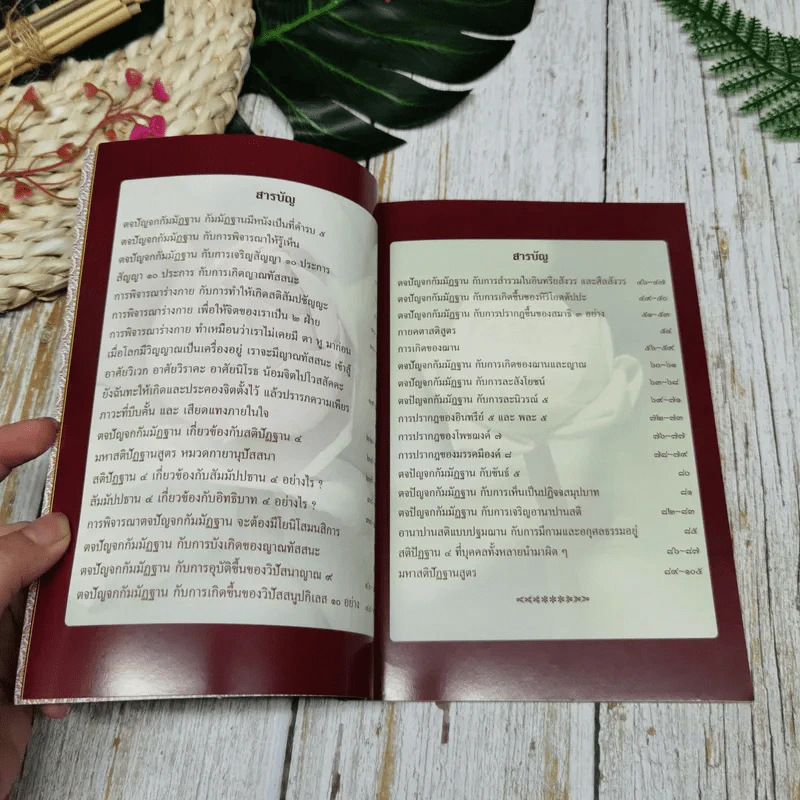 สารบัญ
ตจปัญจกกัมมัฏฐาน กัมมัฏฐานมีหนังเป็นที่คำรบ ๕
ตจปัญจกกัมมัฏฐาน กับการพิจารณาให้รู้เห็น
ตจปัญจกกัมมัฏฐาน กับการเจริญสัญญา ๑๐ ประการ
สัญญา ๑๐ ประการ กับการเกิดญาณทัสสนะ
การพิจารณาร่างกาย กับการทำให้เกิดสติสัมปชัญญะ
การพิจารณาร่างกาย เพื่อให้จิตของเราเป็น ๒ ฝ่าย
การพิจารณาร่างกาย ทำเหมือนว่าเราไม่เคยมี ตา หู มาก่อน
เมื่อโลกมีวิญญาณเป็นเครื่องอยู่ เราจะมีญาณทัสสนะ เข้าสู่
อาศัยวิเวก อาศัยวิราคะ อาศัยนิโรธ น้อมจิตไปโวสสัคคะ
ยังฉันทะให้เกิดและประคองจิตตั้งไว้ แล้วปรารภความเพียร
ภาวะที่บีบคั้น และ เสียดแทงภายในใจ
ตจปัญจกกัมมัฏฐาน เกี่ยวข้องกับสติปัฏฐาน ๔
มหาสติปัฏฐานสูตร หมวดกายานุปัสสนา
สติปัฏฐาน ๔ เกี่ยวข้องกับสัมมัปปธาน ๔ อย่างไร ?
สัมมัปปธาน ๔ เกี่ยวข้องกับอิทธิบาท ๔ อย่างไร ?
การพิจารณาตจปัญจกกัมมัฏฐาน จะต้องมีโยนิโสมนสิการ
ตจปัญจกกัมมัฏฐาน กับการบังเกิดของญาณทัสสนะ
ตจปัญจกกัมมัฏฐาน กับการอุบัติขึ้นของวิปัสนาญาณ ๙
ตจปัญจกกัมมัฏฐาน กับการเกิดขึ้นของวิปัสสนูปกิเลส ๑๐ อย่าง
สารบัญ
ตจปัญจกกัมมัฏฐาน กับการสำรวมในอินทรีย์สังวร และศีลสังวร ๔๖-๔๗
ตจปัญจกกัมมัฏฐาน กับการเกิดขึ้นของหิริโอตตัปปะ ๔๙-๕๐
ตจปัญจกกัมมัฏฐาน กับการปรากฏขึ้นของสมาธิ ๓ อย่าง ๕๑-๕๓
กายคตาสติสูตร ๕๔
การเกิดของฌาน ๕๖-๕๙
ตจปัญจกกัมมัฏฐาน กับการเกิดของฌานและญาณ ๖๐-๖๑
ตจปัญจกกัมมัฏฐาน กับการละสังโยชน์ ๖๓-๖๘
ตจปัญจกกัมมัฏฐาน กับการละนิวรณ์ ๕ ๖๙-๗๑
การปรากฏของอินทรีย์ ๕ และ พละ ๕ ๗๒-๗๓
การปรากฏของโพชฌงค์ ๗ ๗๖-๗๗
การปรากฏของมรรคมีองค์ ๘ ๗๘-๗๙
ตจปัญจกกัมมัฏฐาน กับขันธ์ ๕ ๘๐
ตจปัญจกกัมมัฏฐาน กับการเห็นเป็นปฏิจจสมุปบาท ๘๑
ตจปัญจกกัมมัฏฐาน กับการเจริญอานาปานสติ ๘๒-๘๓
อานาปานสติแบบปฐมฌาน กับการมีกามและอกุศลธรรมอยู่ ๘๕
สติปัฏฐาน ๔ ที่บุคคลทั้งหลายนำมาผิด ๆ ๘๖-๘๗
มหาสติปัฏฐานสูตร ๘๙-๑๐๕